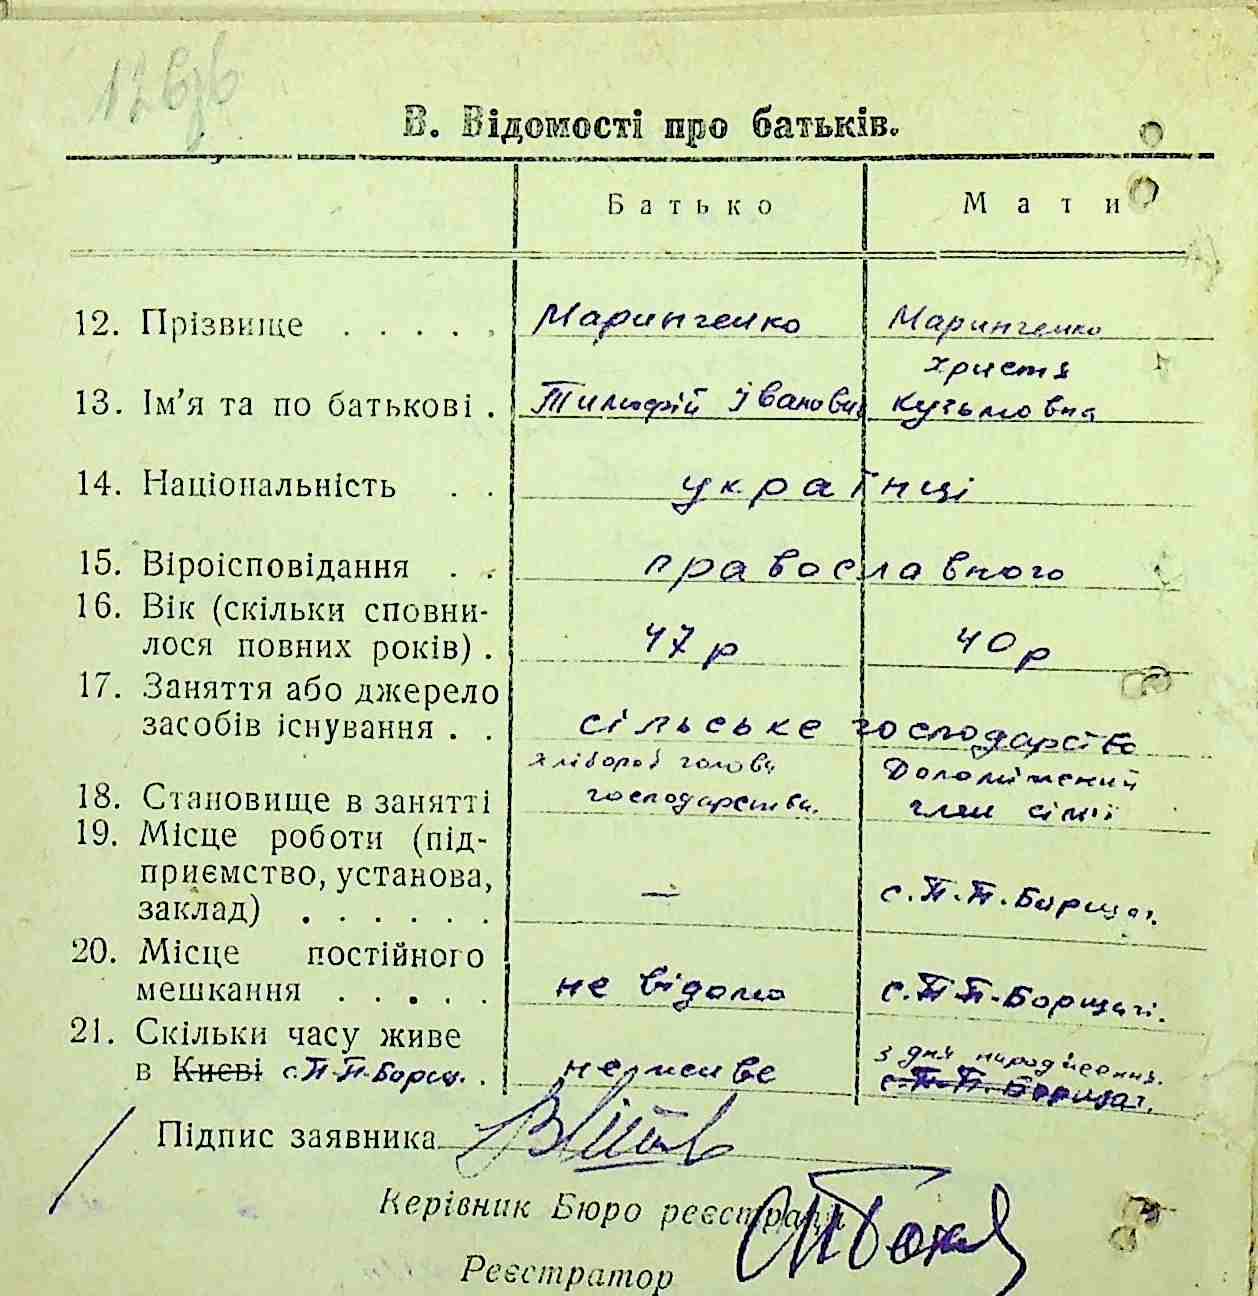 В. Відомості про батьків.
Батько Мати
12. Прізвище . . . . . Маринченко Маринченко
Христя
13. Ім'я та по батькові . Тимофій Іванович Кузьмовна
14. Національність . . українці
15. Віроісповідання . . православного
16. Вік (скільки сповни-
лося повних років) . 47 р 40 р
17. Заняття або джерело
засобів існування . . сільське господарство
хлібороб голова Допоміжний
18. Становище в занятті господарства. член сім'ї
19. Місце роботи (під-
приємство, установа,
заклад) . . . . . . — с. П.-П.-Борщаг.
20. Місце постійного
мешкання . . . . . не відомо с. П-П-Борщагі.
21. Скільки часу живе з дня народження.
в Києві с. П-П-Борщ. . не живе с. П-П-Борщаг.
Підпис заявника
Керівник Бюро реєстрації
Реєстратор